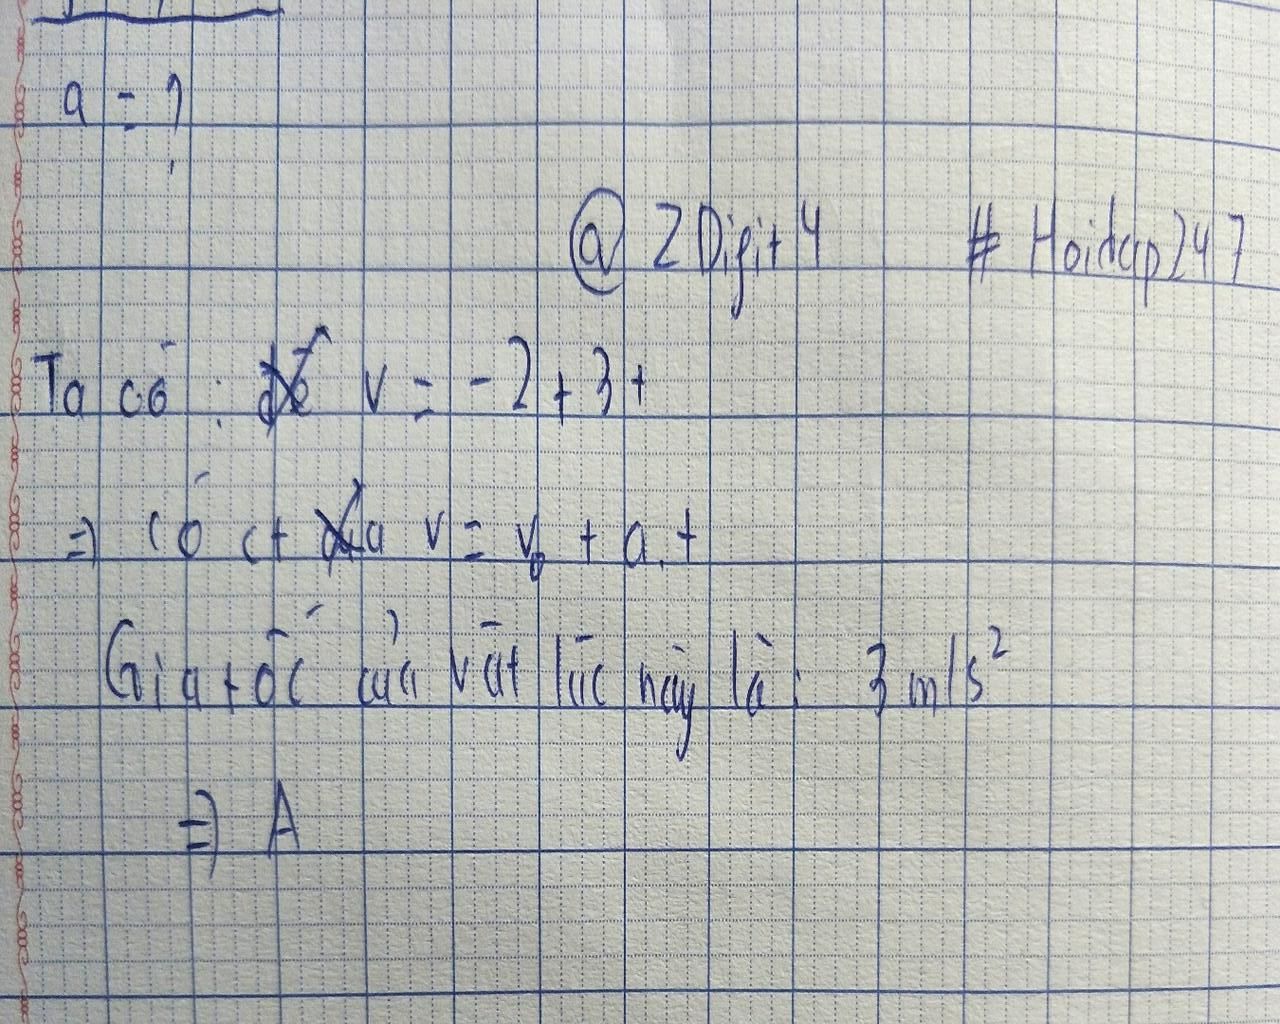 a = ?
@ 2Digit4 # Hoidap247
Ta có : v = -2 + 3t
=) có ct v = v₀ + a.t
Gia tốc của vật lúc này là : 3 m/s²
=) A